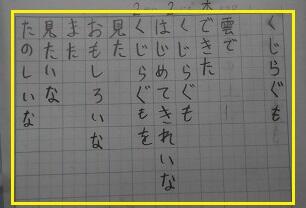 くじらぐも
雲で
できた
くじらぐも
はじめてきれいな
くじらぐもを
見た
おもしろいな
また
見たいな
たのしいな